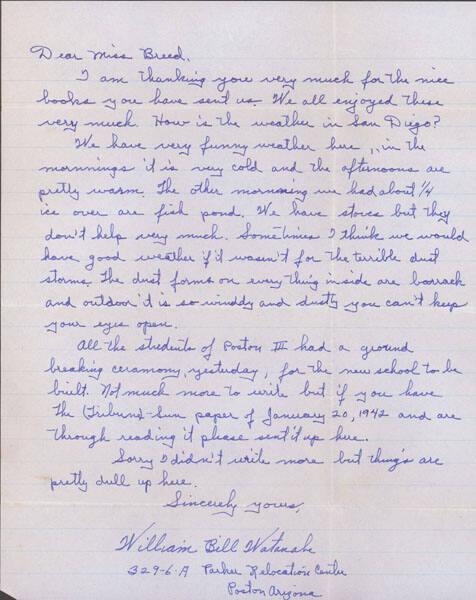 Dear Miss Breed,
I am thanking you very much for the nice
books you have sent us. We all enjoyed these
very much. How is the weather in San Diego?
We have very funny weather here, in the
mornnings it is very cold and the afternoons are
pretty warm. The other mornning we had about 1/4
ice over are fish pond. We have stoves but they
don't help very much. Sometimes I think we would
have good weather if it wasn't for the terrible dust
storms. The dust forms on every thing inside are barrack
and outdoor it is so winddy and dusty you can't keep
your eyes open.
All the students of Poston III had a ground
breaking ceramony, yesterday, for the new school to be
built. Not much more to write but if you have
the (Tribune)-Sun paper of January 20, 1942 and are
through reading it please sent it up here.
Sorry I didn't write more but things are
pretty dull up here.
Sincerely yours,
William Bill Watanabe
329-6-A Parker Relocation Center
Poston Arizona